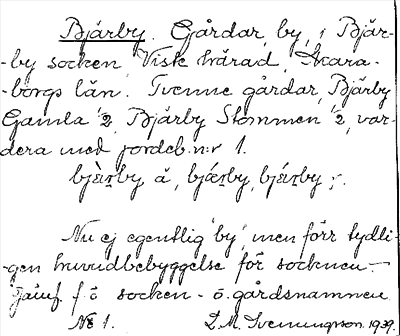 Bjärby. Gårdar, by, i Bjär-
-by socken, Viste härad, Skara-
-borgs län. Tvenne gårdar, Bjärby
Gamla ½, Bjärby Stommen ½, var-
dera med jordeb.n:r 1.
bjæ̀ṛby å, bjǽṛby, bjéṛby
Nu ej egentlig by, men förr tydli-
-gen huvudbebyggelse för socknen. -
Jämf. f. ö. socken- o. gårdsnamnen
No 1. L.M. Svenungsson. 1939.